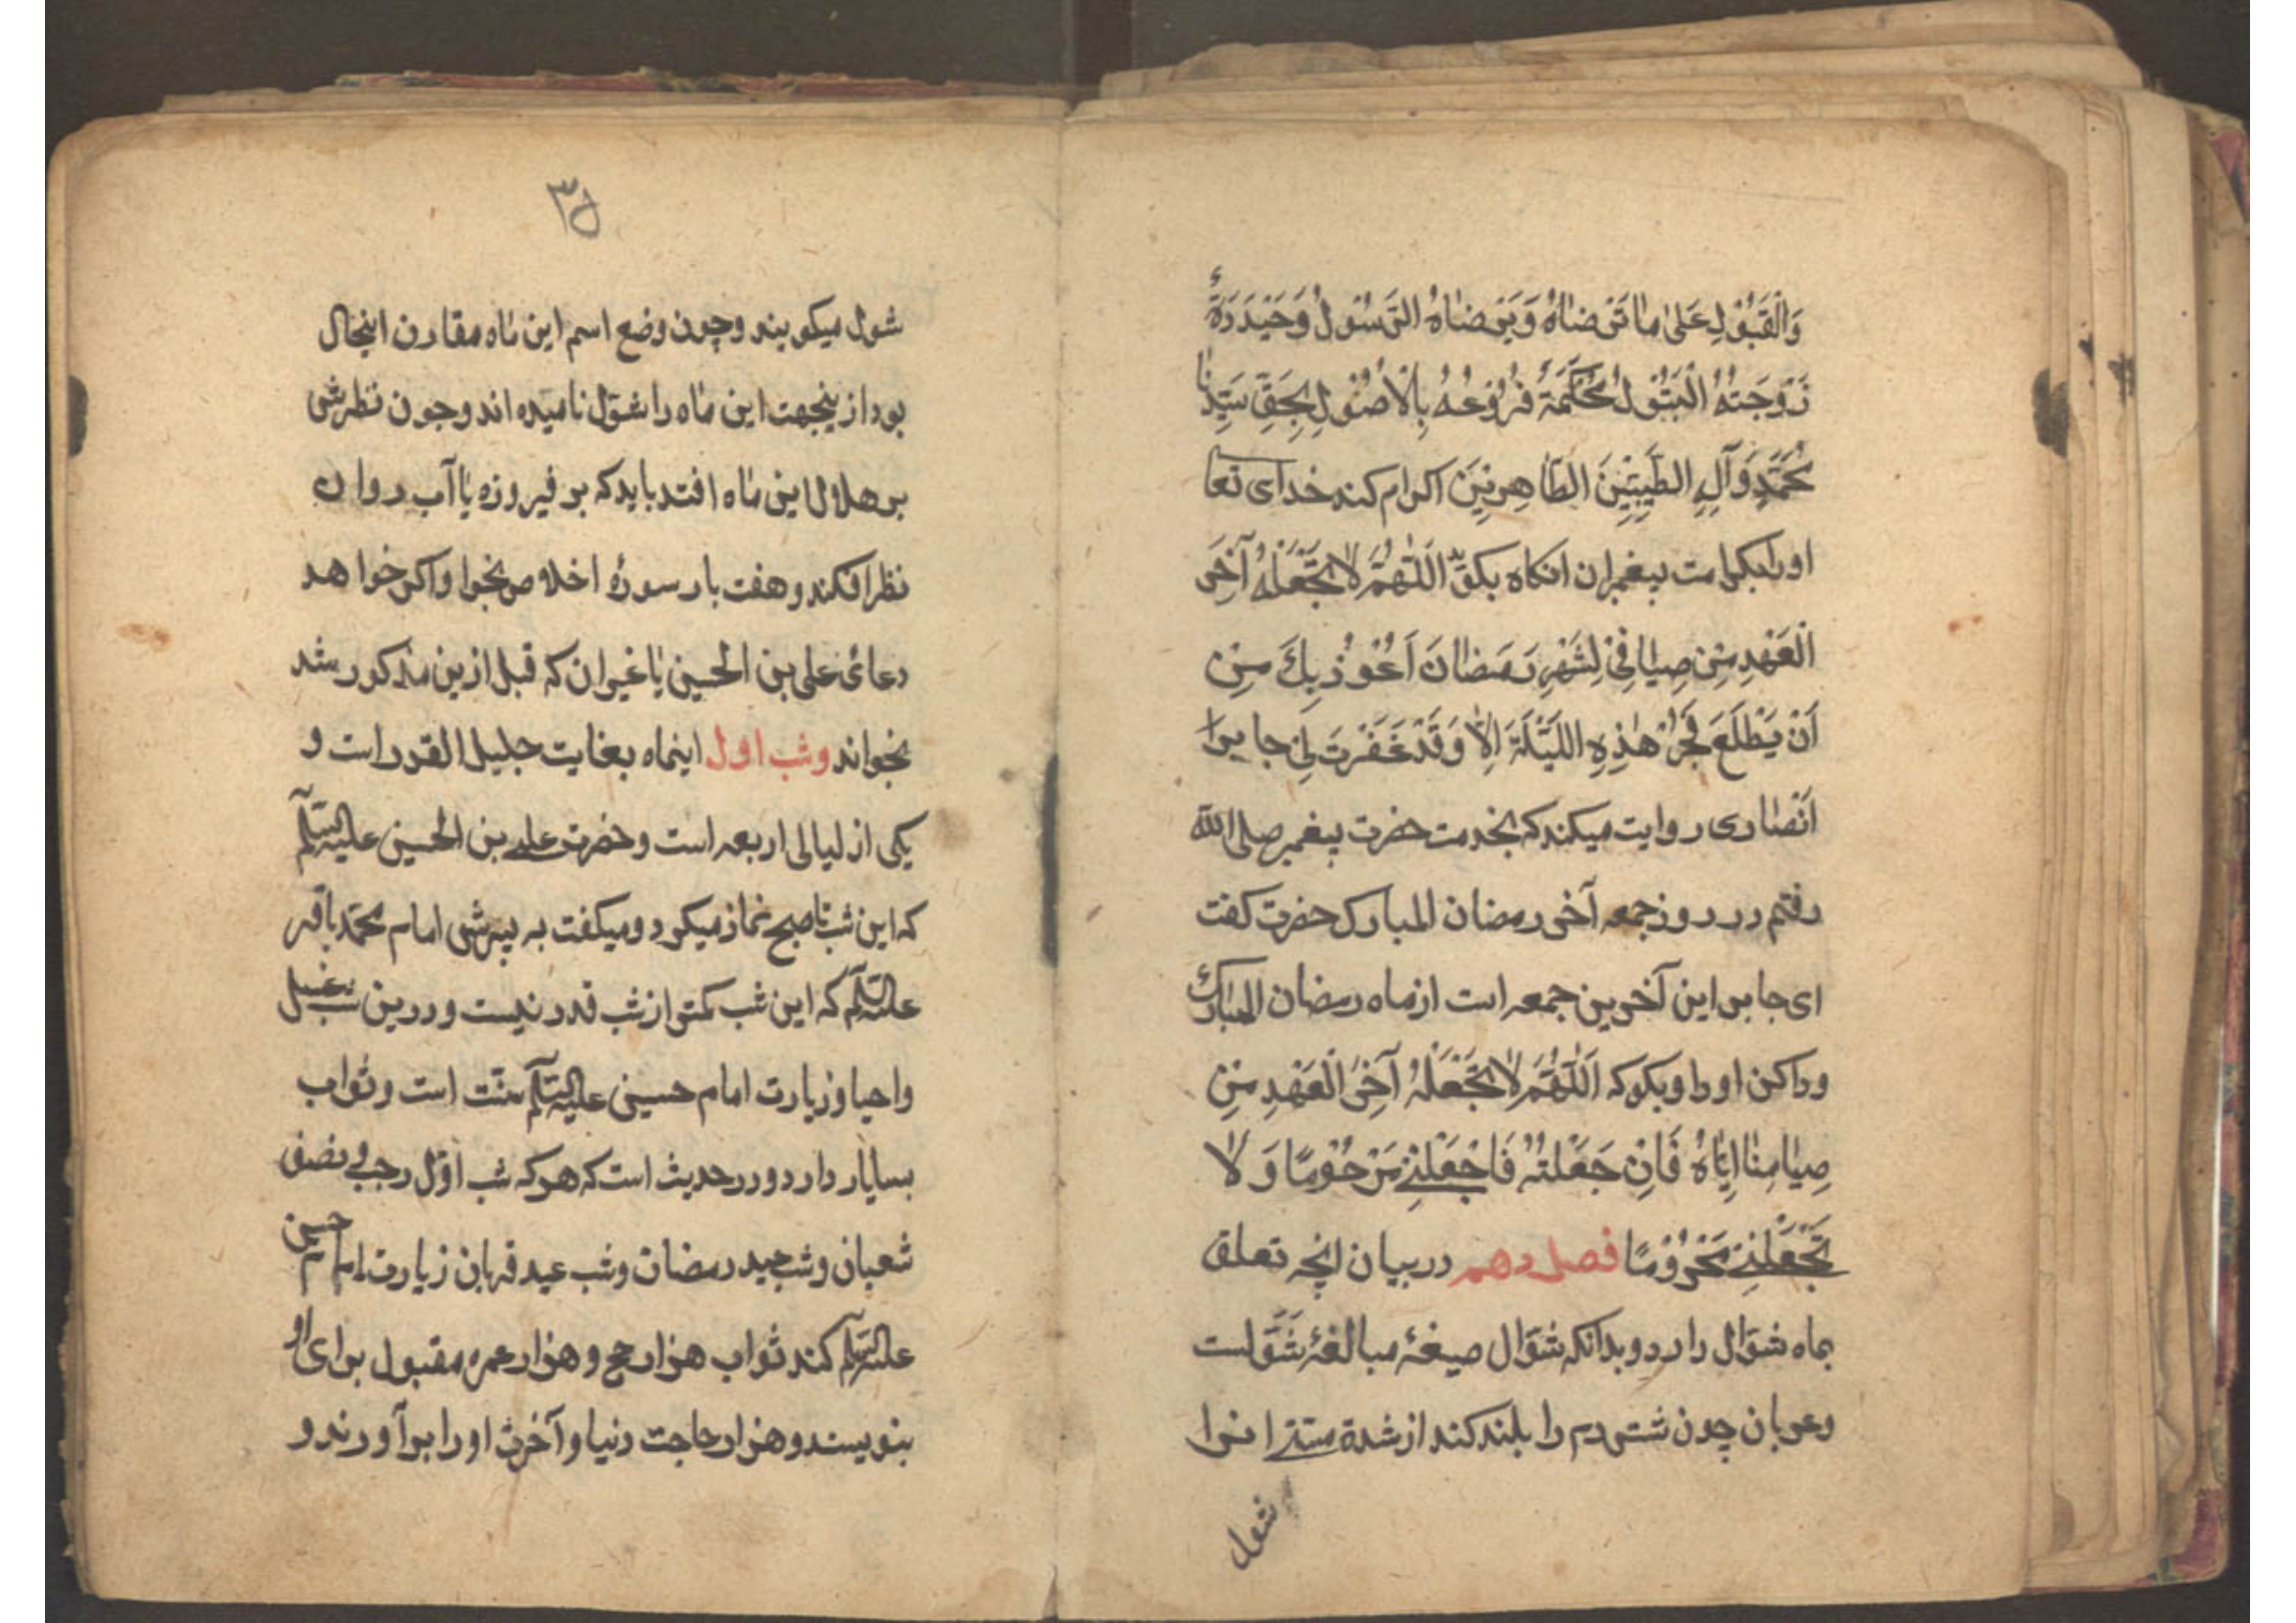 وَالْقَبُولِ عَلىٰ مٰا تَرْضٰاهُ وَيَرْضٰاهُ الرَّسُولُ وَحَيْدَرَةُ
زَوْجَتُهُ الْبَتُولُ مُحْكَمَةً فُرُوعُهُ بِالْأُصُولِ بِحَقِّ سَيِّدِنٰا
مُحَمَّدٍ وَآلِهِ الطَّيِّبِينَ الطّٰاهِرِينَ اکرام کند خدای تعا
او را بکرامت پیغمبران انکاه بکو اَللّٰهُمَّ لاٰ تَجْعَلْهُ آخِرَ
الْعَهْدِ مِنْ صِيٰامِي لِشَهْرِ رَمَضٰانَ اَعُوذُ بِكَ مِنْ
اَنْ يَطْلَعَ فَجْرُ هٰذِهِ اللَّيْلَةِ اِلاّٰ وَقَدْ غَفَرْتَ لِي جابر
اَنْصٰاری روایت میکند که بخدمت حضرت پیغمبر صلی الله
رفتم در روز جمعه آخر رمضان المبارک حضرت کفت
ای جابر این آخرین جمعه است از ماه رمضان المبارك
وداکن او را و بکو که اَللّٰهُمَّ لاٰ تَجْعَلْهُ آخِرَ الْعَهْدِ مِنْ
صِيٰامِنٰا اِيّٰاهُ فَاِنْ جَعَلْتَهُ فَاجْعَلْنِي مَرْحُومًا وَ لاٰ
تَجْعَلْنِي مَحْرُومًا فصل دهم در بیان انچه تعلق
بماه شوّال دارد و بدانکه شوّال صیغهٔ مبالغهٔ شَوَلست
وعربان چون شتر دم را بلند کند از شدة مستے انرا
شول
٣٥
شول میکویند و چون وضع اسم این ماه مقارن اینحال
بود از ینجهت این ماه را شوّال نامیده اند و چون نظرش
بر هلال این ماه افتد باید که بر فیروزه یا آب روان
نظر افکند و هفت بار سورهٔ اخلاص بخوا واکر خواهد
دعائ علی بن الحسین یا غیر ان که قبل ازین مذکور شد
بخواند وشب اول اینماه بغایت جلیل القدر است و
یکی از لیالی اربعه است و حضرت علے بن الحسین علیه السلام
که این شب تا صبح نماز میکرد و میکفت به پسرش امام محمّد باقر
علیه السلام که این شب کمتر از شب قدر نیست و درین شب غسل
واحیا وزیارت امام حسین علیه السلام سنّت است و ثواب
بسایار دارد و در حدیث است که هر که شب اوّل رجب و نصف
شعبان و شب عید رمضان و شب عید قربان زیارت امام حسین
علیه السلام کند ثواب هزار حج و هزار عمره مقبول برای او
بنویسند و هزار حاجت دنیا و آخرت او را برآورند و